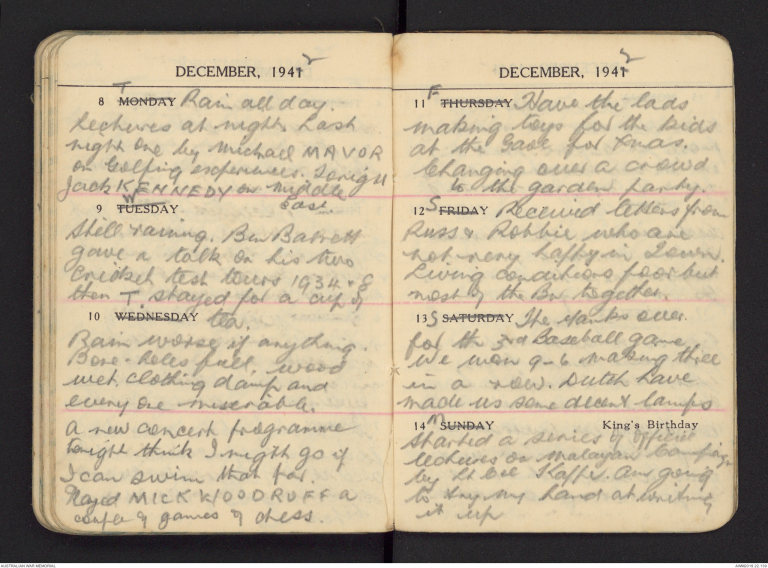 DECEMBER, 1941 2
8 MONDAY T Rain all day.
Lectures at night. Last
night one by Michael MAVOR
on Golfing experiences. Tonight
Jack KENNEDY on Middle
East
9 TUESDAY W
Still raining. Ben Barnett
gave a talk on his two
Cricket test tours 1934 & 8
then stayed for a cup of
tea.
10 WEDNESDAY T
Rain worse if anything.
Bore-holes full, wood
wet, clothing damp and
everyone miserable.
A new concert programme
tonight think I might go if
I can swim that far.
Played MICK WOODRUFF a
couple of games of chess.
DECEMBER, 1941 2
11 THURSDAY F Have the lads
making toys for the kids
at the Gaol for Xmas.
Changing over a crowd
to the garden party.
12 FRIDAY S Received letters from
Russ & Robbie who are
not very happy in Town.
Living conditions poor but
most of the Bn together.
13 SATURDAY S The Yanks over
for the 3rd Baseball game.
We won 9-6 making three
in a row. Dutch have
made us some decent lamps
14 SUNDAY M King's Birthday
Started a series of official
lectures on Malayan Campaign
by Lt Col Kappe. Am going
to try my hand at writing
it up
AUSTRALIAN WAR MEMORIAL